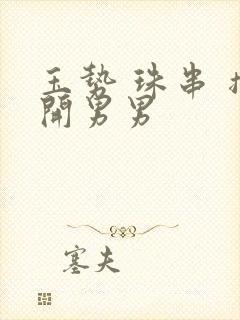 玉势 珠串
開男男
塞夫